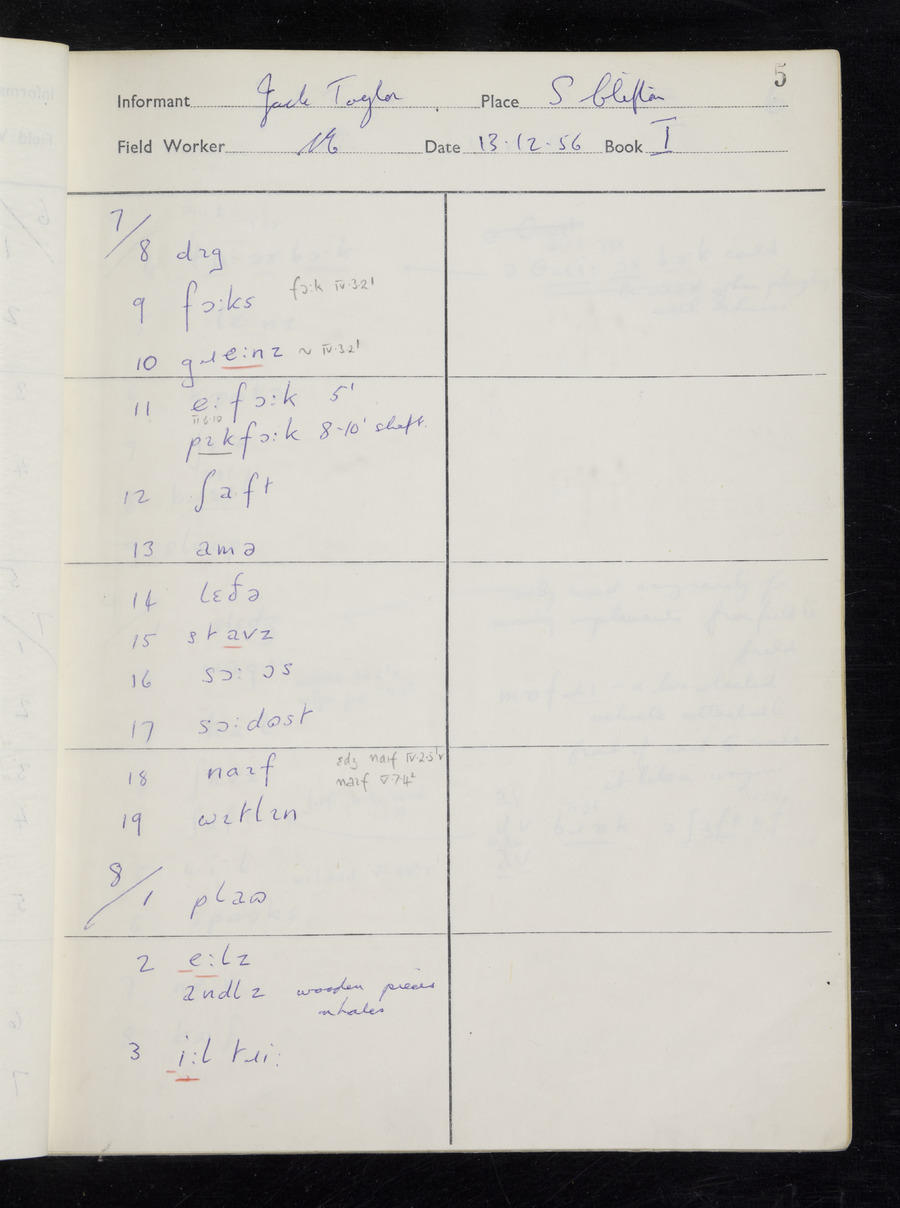 5
Informant Jack Taylor Place S Clifton
Field Worker Date 13·12·56 Book I
7/
8 dɪg
9 fɔ:ks fɔ:k IV·3·2¹
10 gɹe:nz ~ IV·3·2¹
11 e:fɔ:k 5'
pɪkfɔ:k 8-10' shaft.
12 ʃaft
13 amə
14 lɛðə
15 stavz
16 sɔ:ɔs
17 sɔ:dɷst
18 naɪf ɛdʒ naɪf IV·2·5
naɪf V·7·4²
19 wɪtlɪn
8/
1 plaɷ
2 e:lz
andlz wooden pieces
3 i:l tɹi: